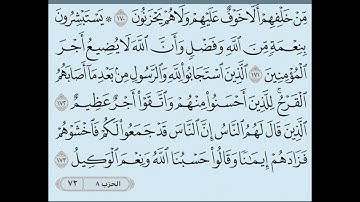 مِّنْ خَلْفِهِمْ أَلَّا خَوْفٌ عَلَيْهِمْ وَلَا هُمْ يَحْزَنُونَ ١٧٠ ۞ يَسْتَبْشِرُونَ
بِنِعْمَةٍ مِّنَ ٱللَّهِ وَفَضْلٍ وَأَنَّ ٱللَّهَ لَا يُضِيعُ أَجْرَ
ٱلْمُؤْمِنِينَ ١٧١ ٱلَّذِينَ ٱسْتَجَابُوا۟ لِلَّهِ وَٱلرَّسُولِ مِنۢ بَعْدِ مَآ أَصَابَهُمُ
ٱلْقَرْحُ ۚ لِلَّذِينَ أَحْسَنُوا۟ مِنْهُمْ وَٱتَّقَوْا۟ أَجْرٌ عَظِيمٌ ١٧٢
ٱلَّذِينَ قَالَ لَهُمُ ٱلنَّاسُ إِنَّ ٱلنَّاسَ قَدْ جَمَعُوا۟ لَكُمْ فَٱخْشَوْهُمْ
فَزَادَهُمْ إِيمَـٰنًا وَقَالُوا۟ حَسْبُنَا ٱللَّهُ وَنِعْمَ ٱلْوَكِيلُ ١٧٣
الحزب ٨ ٧٢